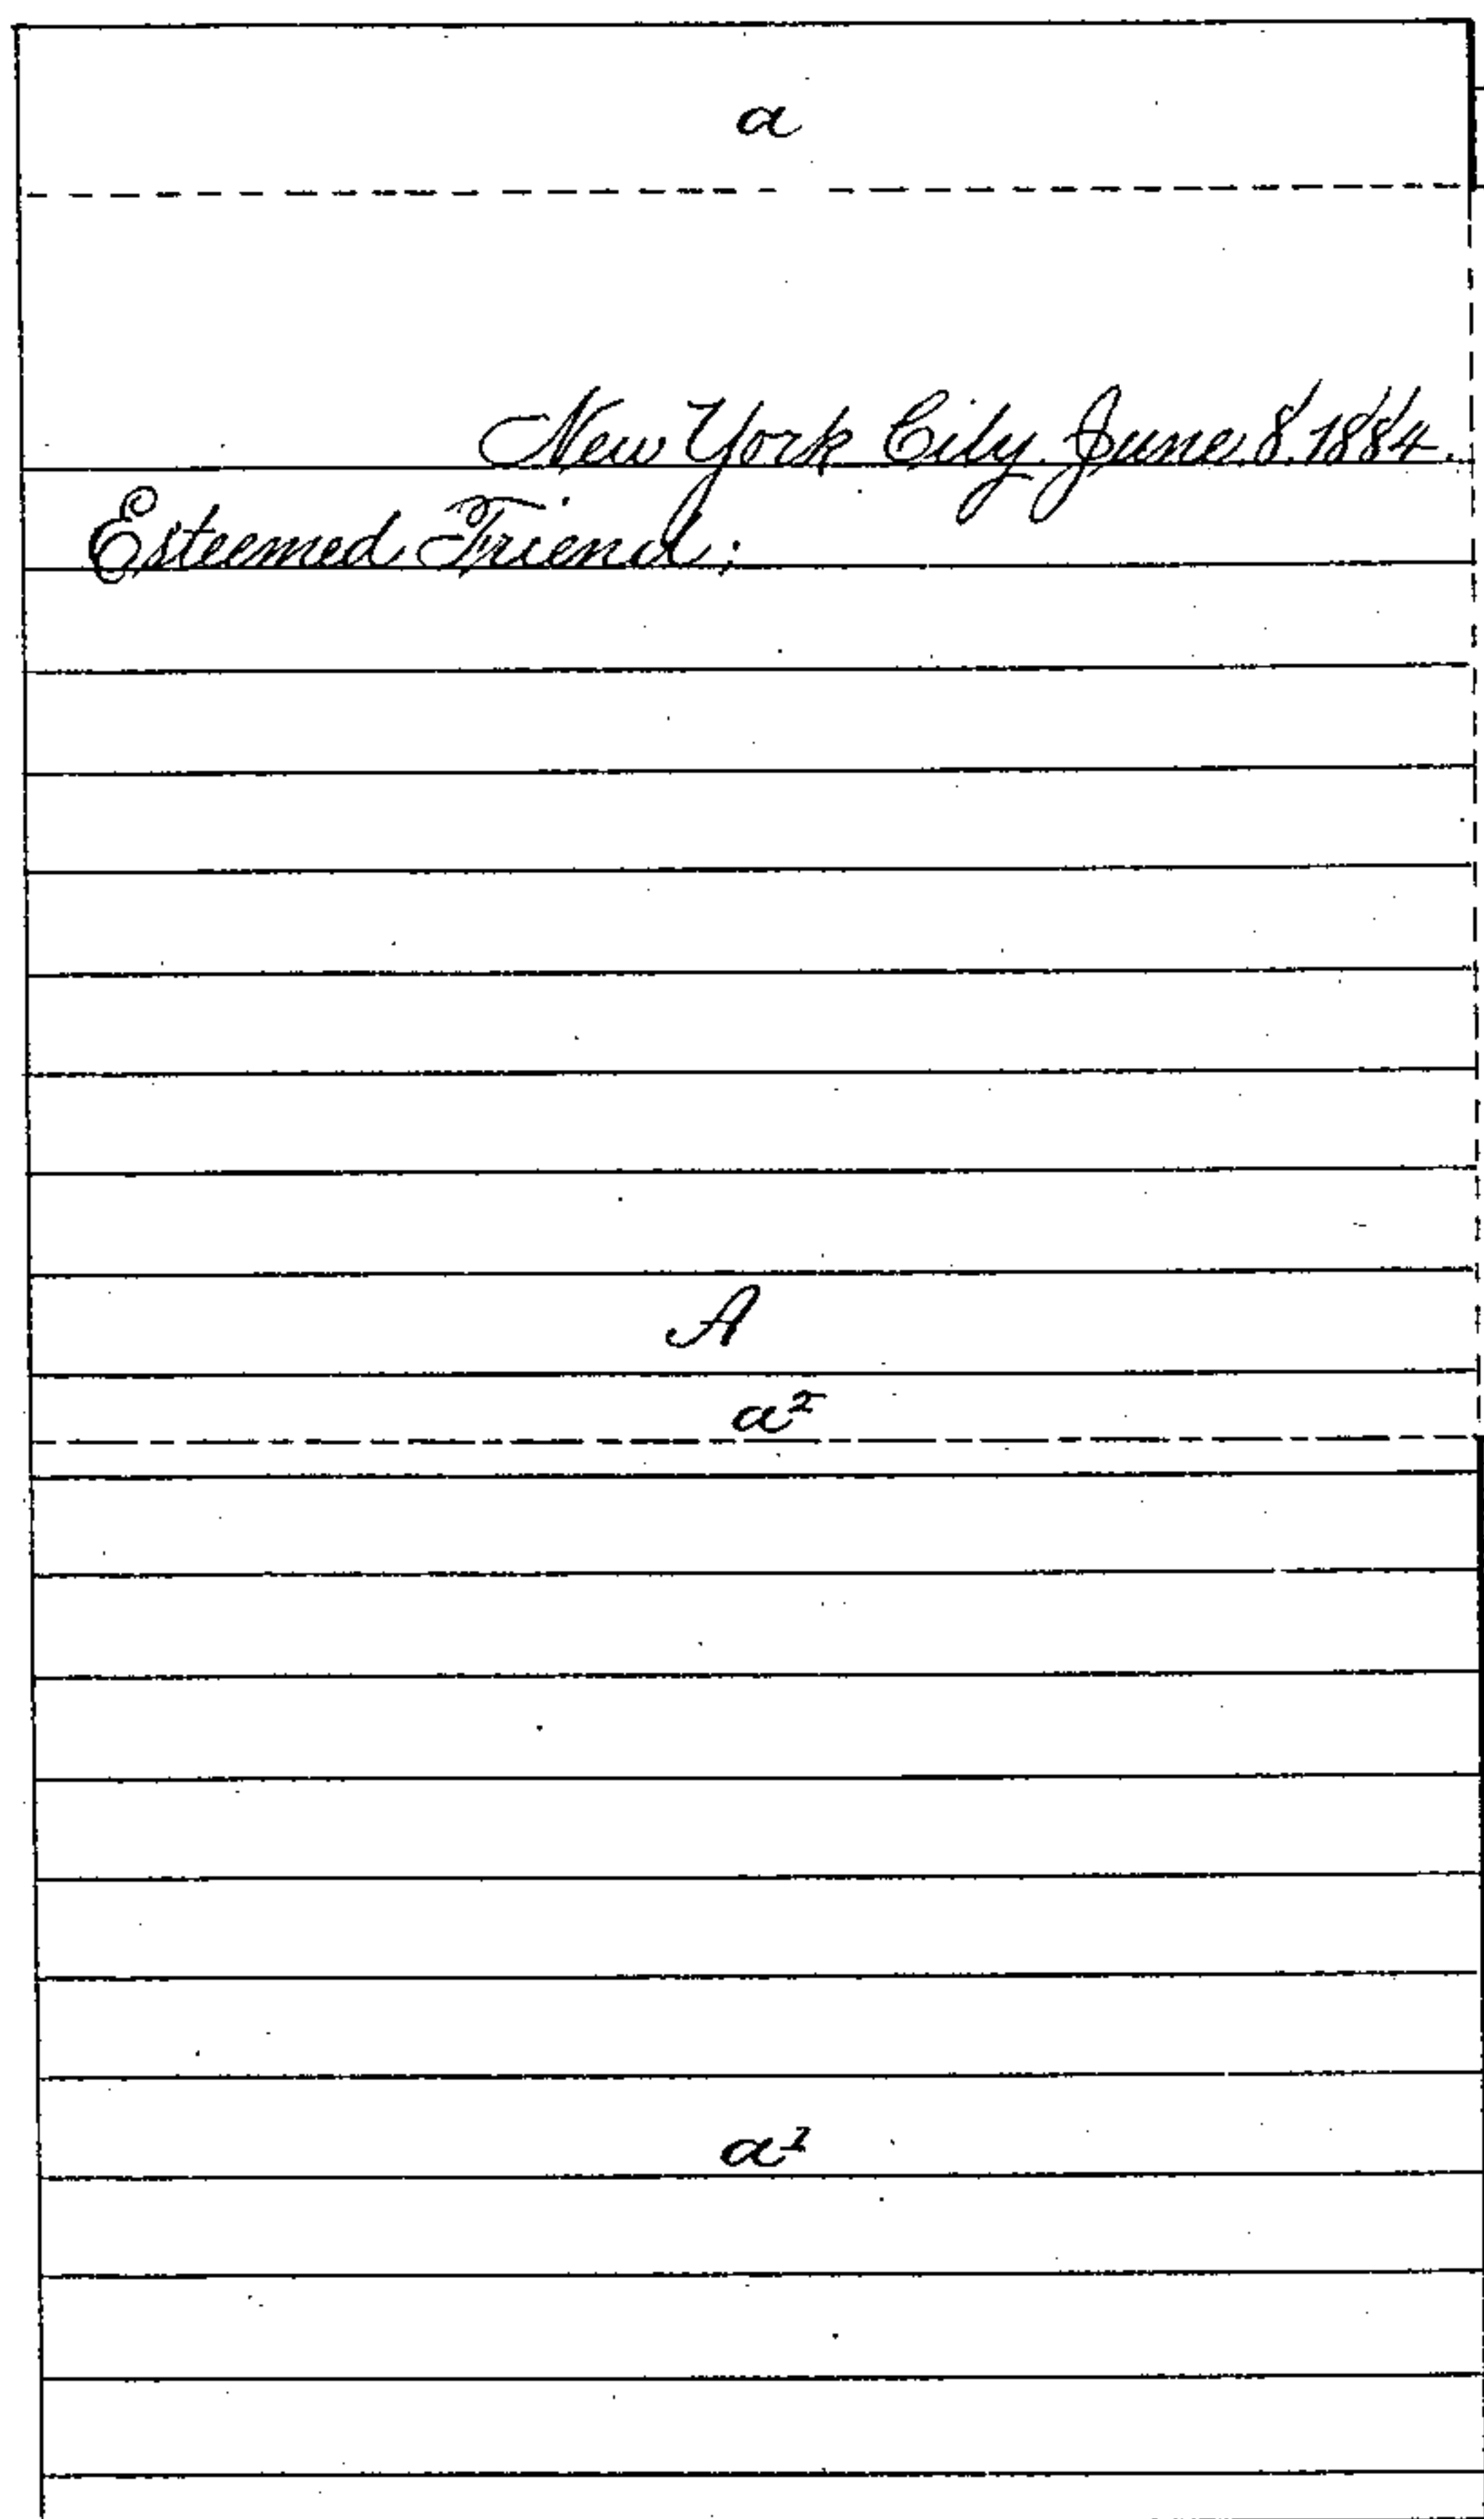 a
New York City June 8. 1884.
Esteemed Friend;
A
a²
a¹